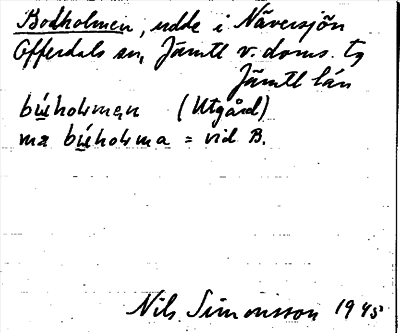 Bodholmen, udde i Näversjön
Offerdals sn, Jämtl v. doms. tg
Jämtl län
búholmen (Utgård)
mæ búholma = vid B.
Nils Simonsson 1945